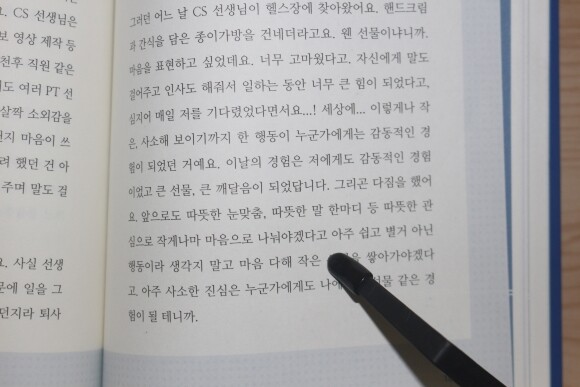 CS 선생님은
보 영상 제작 등
천후 직원 같은
도 여러 PT 선
살짝 소외감을
지 마음이 쓰
려 했던 건 아
주며 말도 걸
요. 사실 선생
문에 일을 그
던지라 퇴사
그러던 어느 날 CS 선생님이 헬스장에 찾아왔어요. 핸드크림
과 간식을 담은 종이가방을 건네더라고요. 웬 선물이냐니까.
마음을 표현하고 싶었데요. 너무 고마웠다고. 자신에게 말도
걸어주고 인사도 해줘서 일하는 동안 너무 큰 힘이 되었다고,
심지어 매일 저를 기다렸었다면서요...! 세상에... 이렇게나 작
은, 사소해 보이기까지 한 행동이 누군가에게는 감동적인 경
험이 되었던 거예요. 이날의 경험은 저에게도 감동적인 경험
이었고 큰 선물, 큰 깨달음이 되었답니다. 그리곤 다짐을 했어
요. 앞으로도 따뜻한 눈맞춤, 따뜻한 말 한마디 등 따뜻한 관
심으로 작게나마 마음으로 나눠야겠다고 아주 쉽고 별거 아닌
행동이라 생각지 말고 마음 다해 작은 쌓아가야겠다
고. 아주 사소한 진심은 누군가에게도 선물 같은 경
험이 될 테니까.